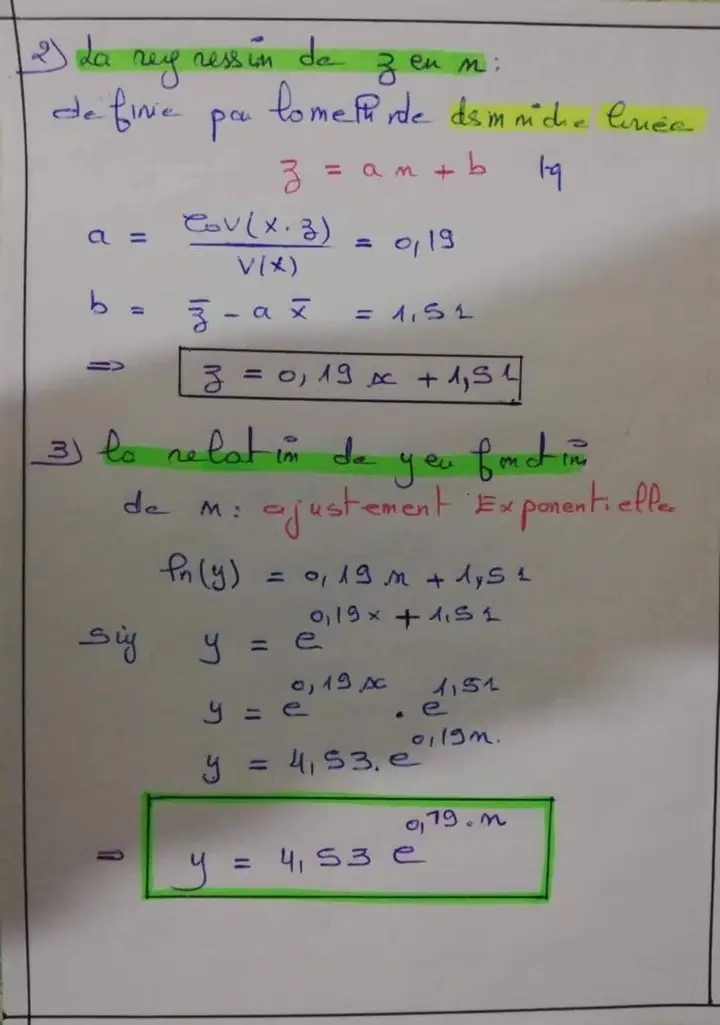 2) La regression de z en x :
définie par la methode des moindre carrée
z = a x + b tq
a = Cov(x.z) / V(x) = 0,19
b = z̄ - a x̄ = 1,51
=> z = 0,19 x + 1,51
3) la relation de y en fonction
de x : ajustement Exponentielle
ln(y) = 0,19 x + 1,51
sig y = e^0,19x + 1,51
y = e^0,19x . e^1,51
y = 4,53. e^0,19x.
=> y = 4,53 e^0,19.x